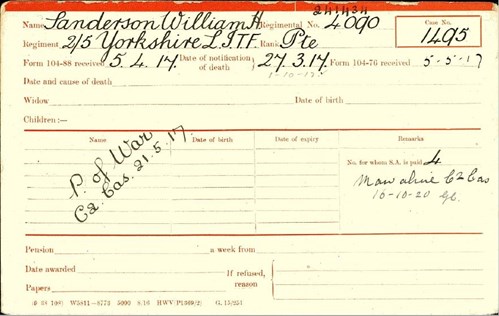 241434
Name Sanderson William H. Regimental No. 4090 Case No. 1495
Regiment 2/5 Yorkshire L.I.T.F. Rank Pte
Form 104-88 received 5.4.17. Date of notification of death 27.3.17. Form 104-76 received 5-5-17
Date and cause of death
Widow Date of birth
Children:—
Name Date of birth Date of expiry Remarks
P. of War
C2 Cas. 21.5.17.
No. for whom S.A. is paid 4
Man alive C2 Cas
16-10-20
Pension a week from
Date awarded If refused, reason
Papers
W5811—8773 5000 8/16 HWV(P1309/2) G. 15/251